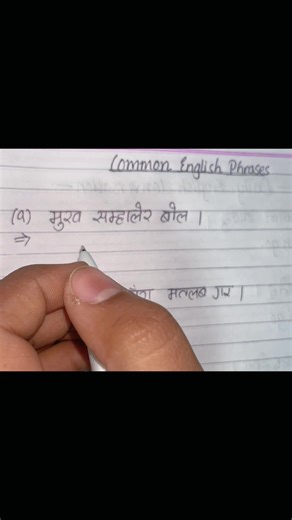 Common English Phrases
(a) मुख सम्हालेर बोल ।
⇒
मतलब गर ।